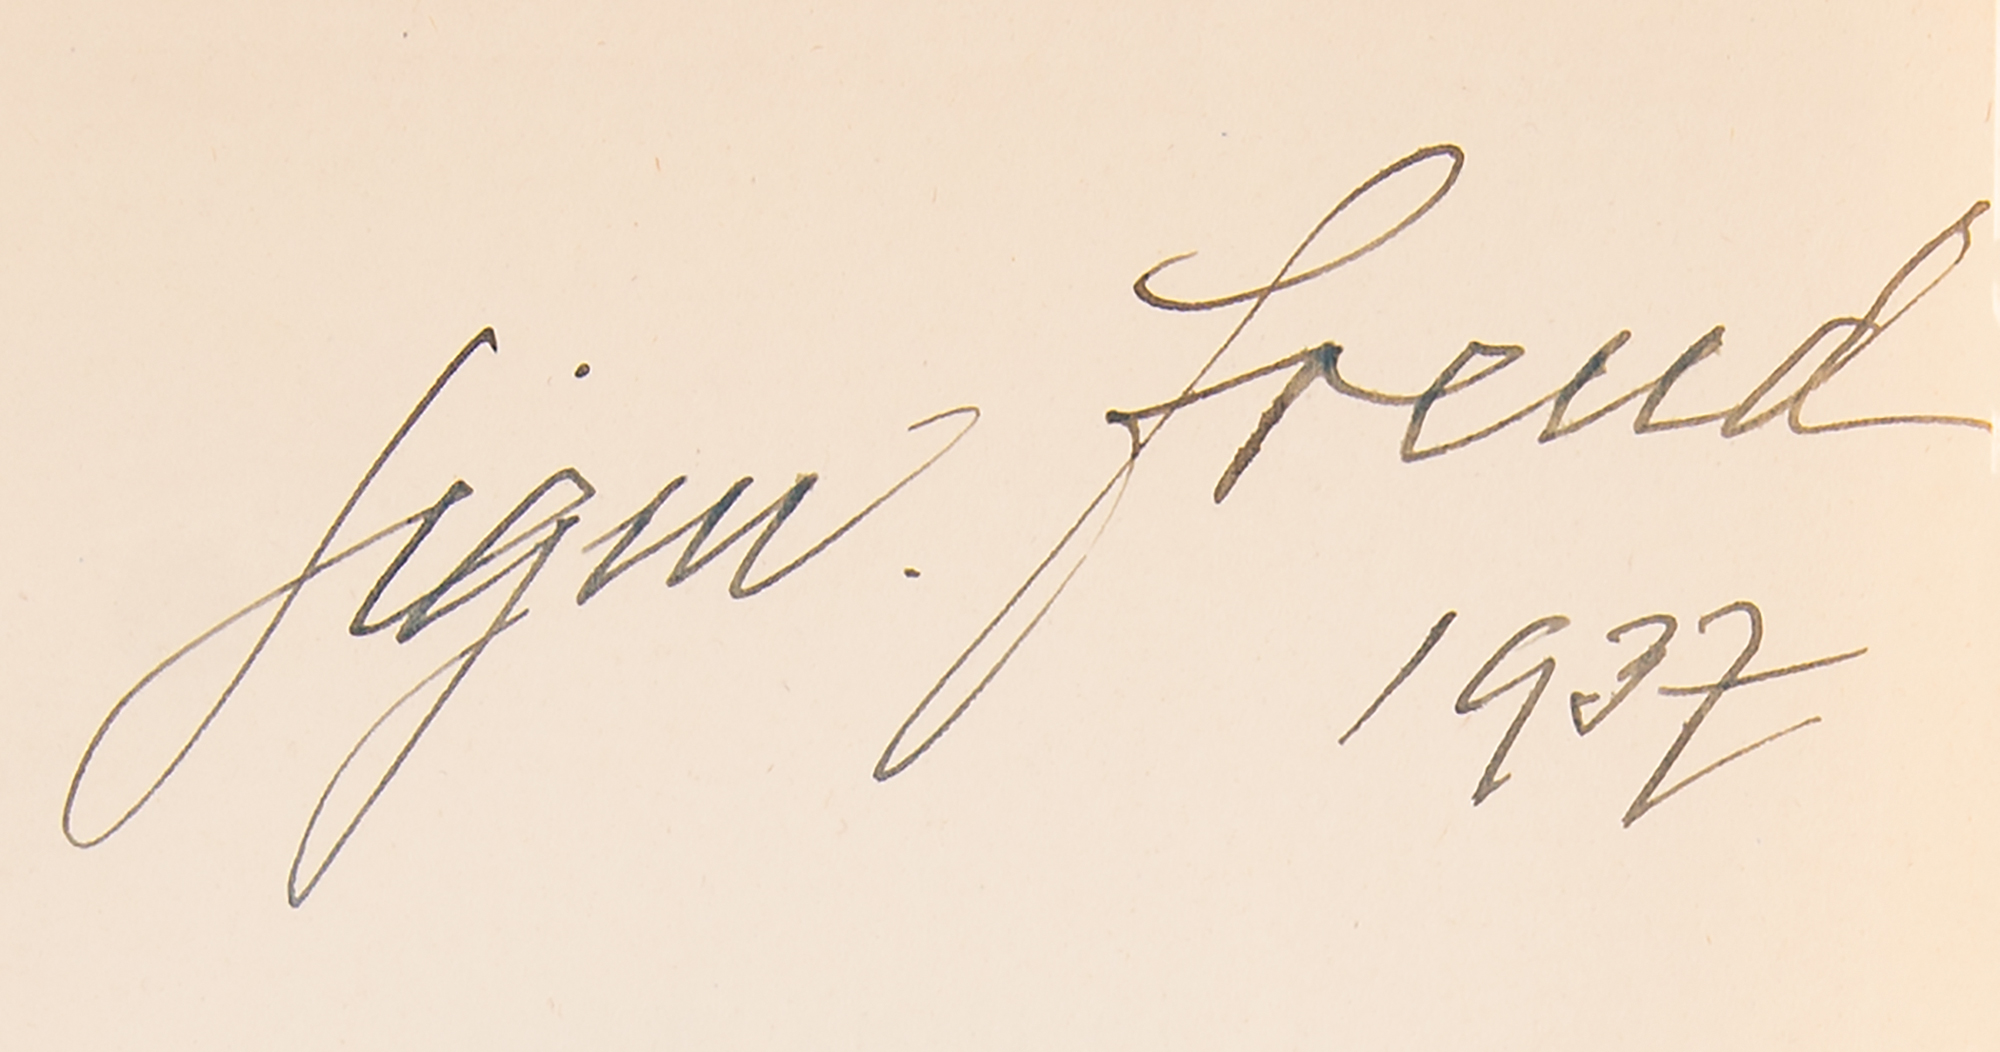 Sigm. Freud
1937